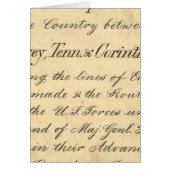 e Country betwee
ey, Tenn. & Corinth
ng the lines of E
made & the Rout
the U.S. Forces un
nd of Maj. Genl.
in their Advan